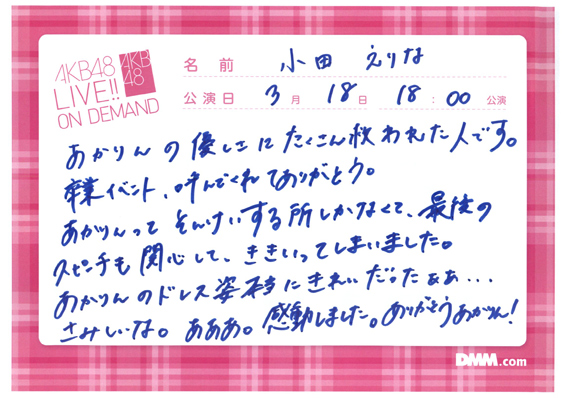 AKB48
LIVE!!
ON DEMAND
AKB
48
名前 小田 えりな
公演日 3月 18日 18:00 公演
あかりんの優しさにたくさん救われた人です。
卒業イベント、呼んでくれてありがとう。
あかりんって そんけいする所しかなくて、最後の
スピーチも 関心して、ききいってしまいました。
あかりんのドレス姿本当にきれいだったぁぁ...
さみしいな。あああ。感動しました。ありがとうあかりん!
DMM.com